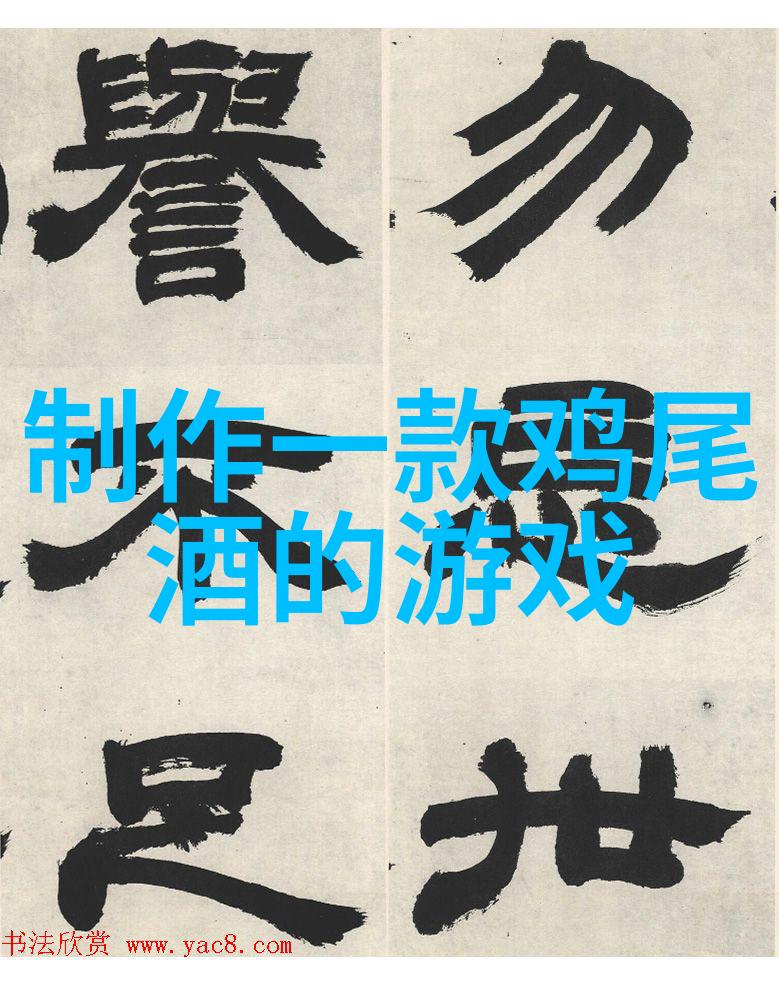 勿
世
譽不足
制作一款鸡尾
酒的游戏
书法欣赏 www.yac8.com